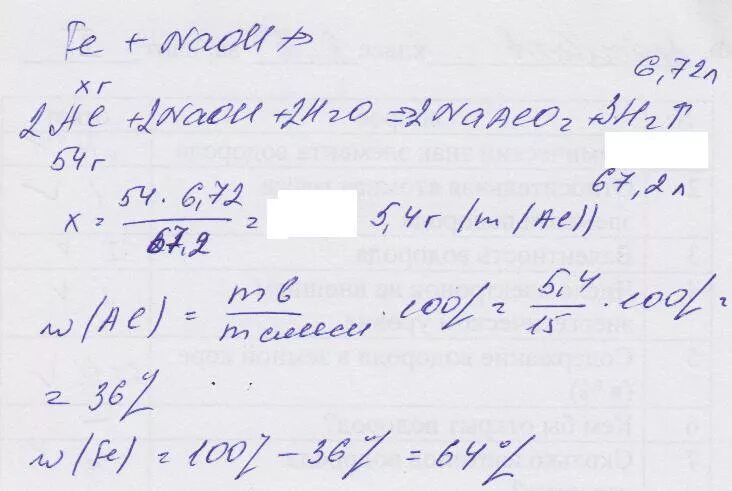 Fe + NaOH ↛
xг 6,72л
2Al + 2NaOH + 2H2O => 2NaAlO2 + 3H2↑
54г 67,2л
x = 54 · 6,72 / 67,2 = 5,4г (m(Al))
w(Al) = mв / mсмеси · 100% = 5,4 / 15 · 100% =
= 36%
w(Fe) = 100% - 36% = 64%